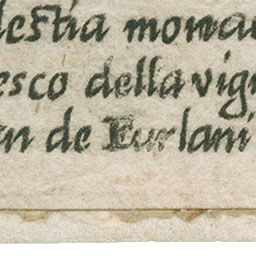 lestia mona
esco della vig
an de Furlani